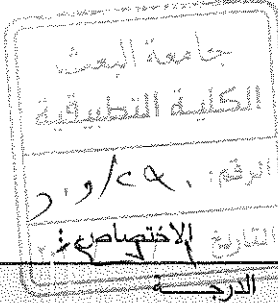 جامعة البعث
الكلية التطبيقية
الرقم:
التاريخ
الاختصاص:
الدرجة